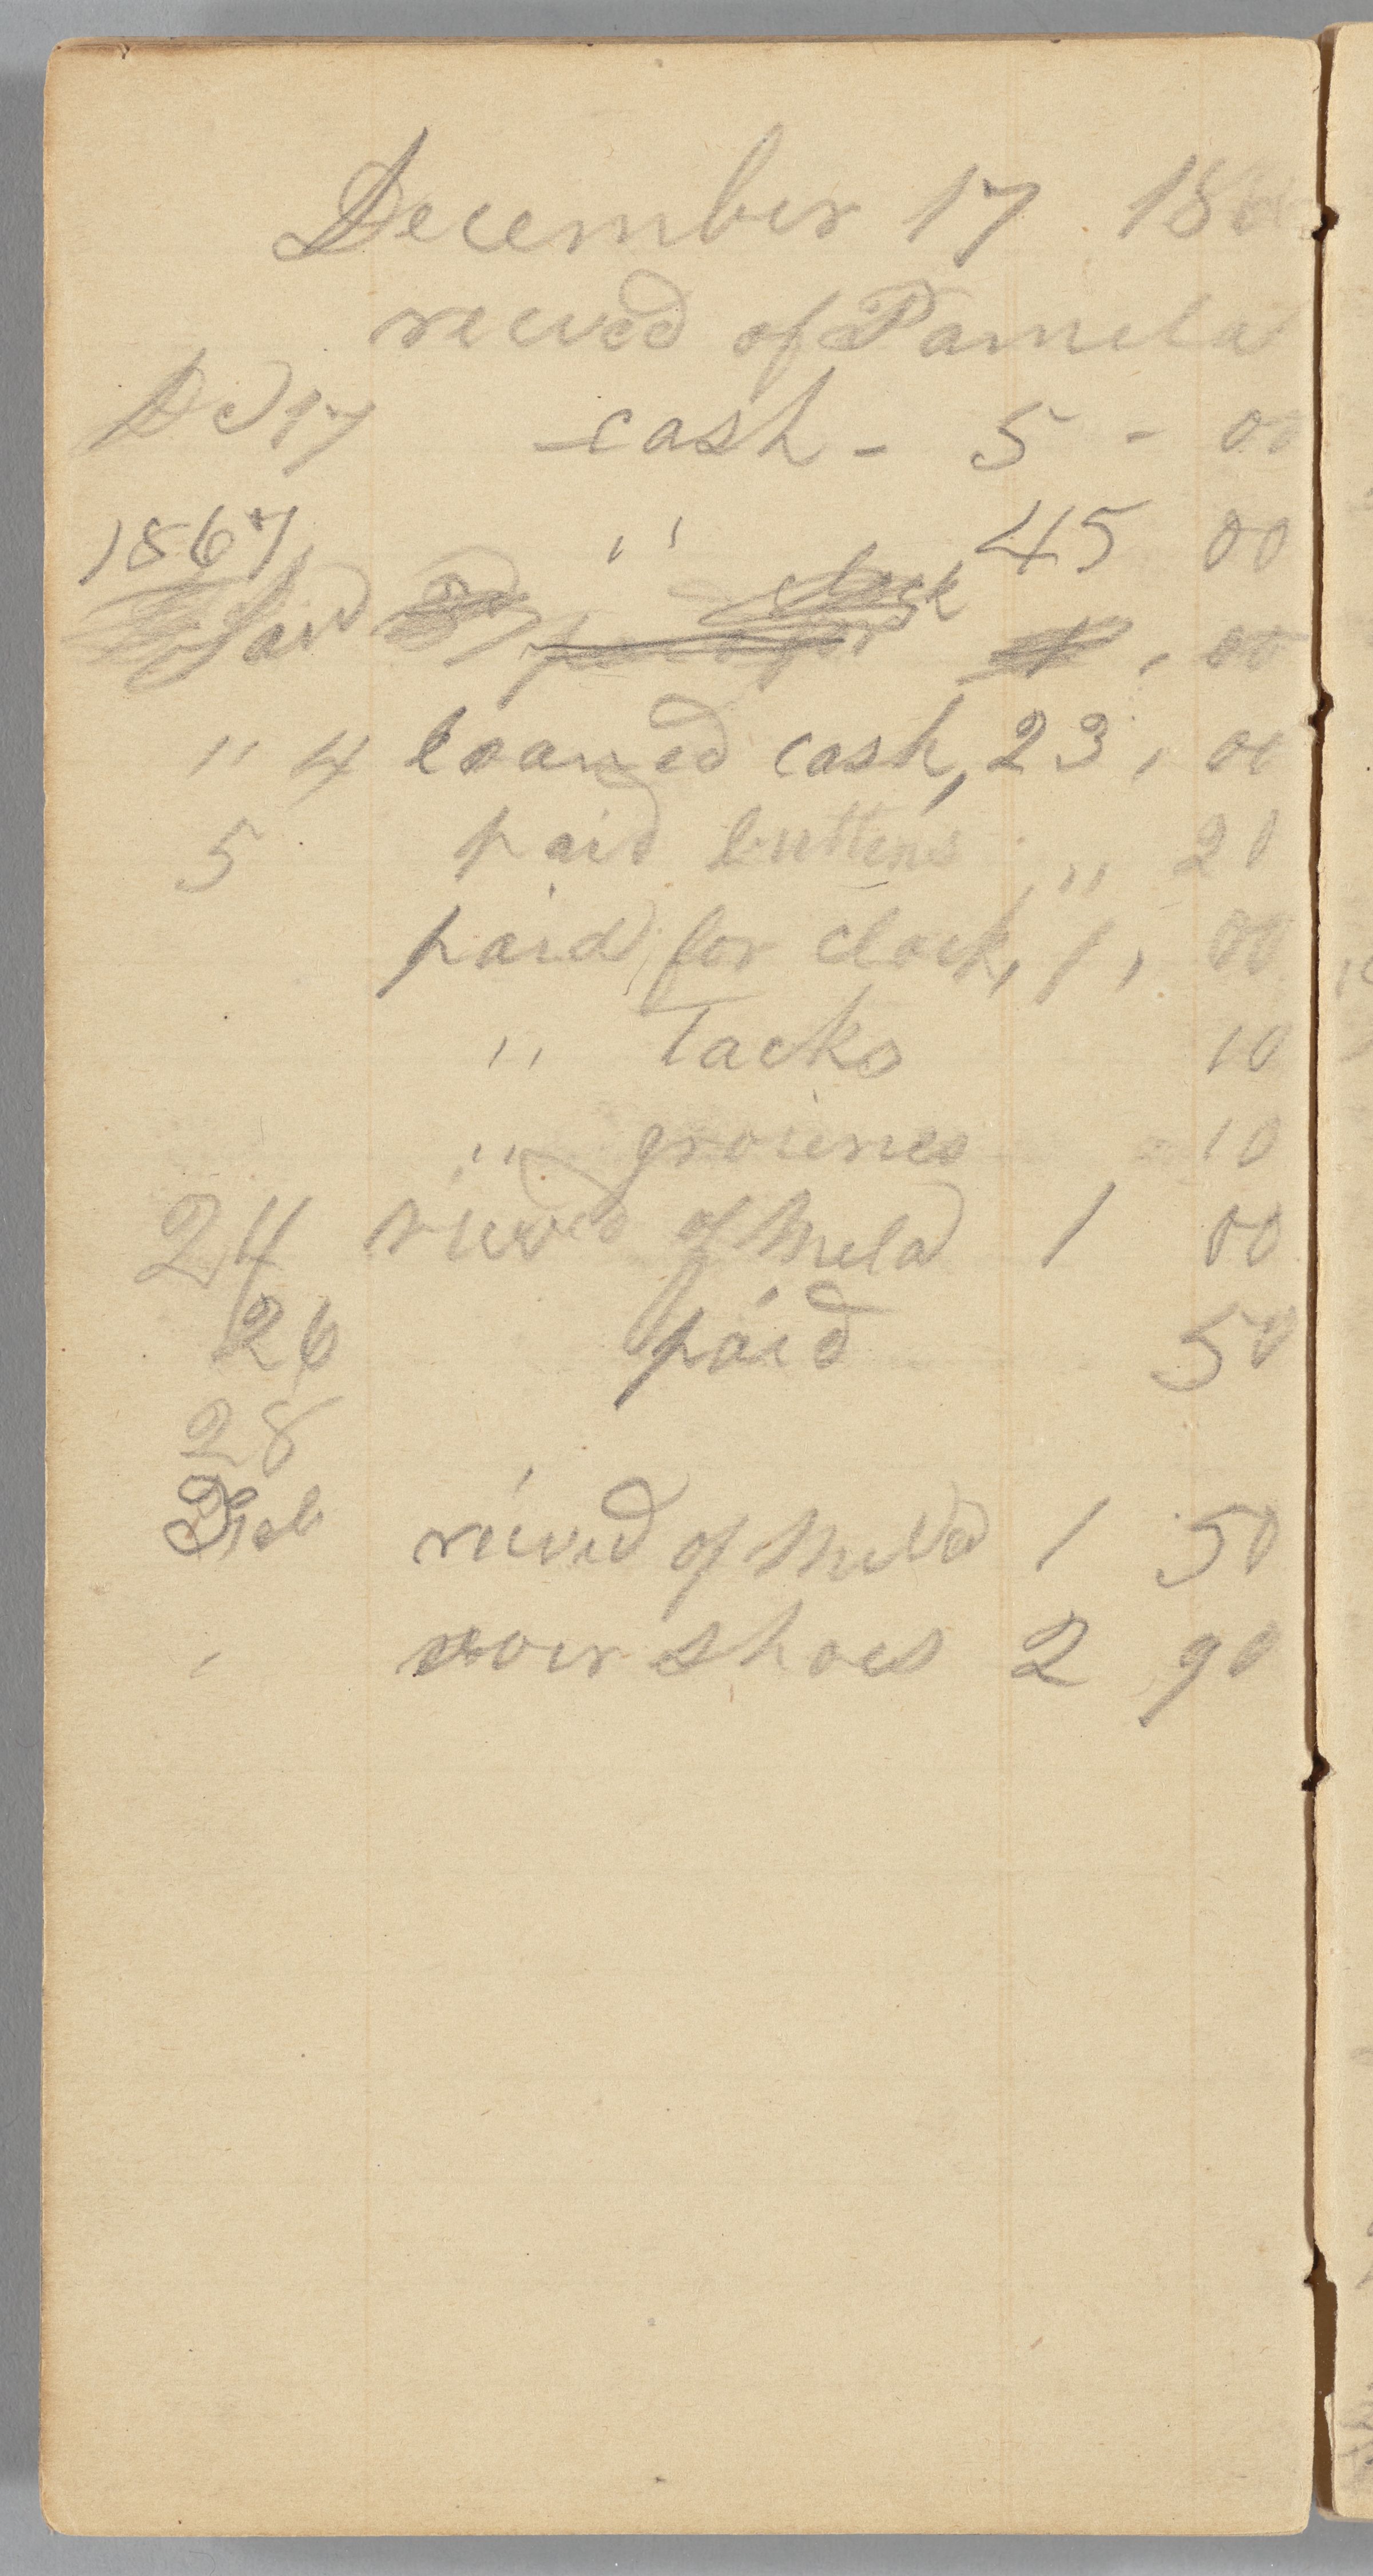 December 17 18
recived of Pamela
Dc 17 cash - 5 - 00
1867 " 45 00
clock
Jan 00
" 4 loaned cash, 23, 00
5 paid buttens " 20
paid for clock, 1, 00
" Tacks 10
" groieries 10
24 recived of Mela 1 00
26 paid 50
28
Feb recived of Mela 1 50
over shoes 2 90